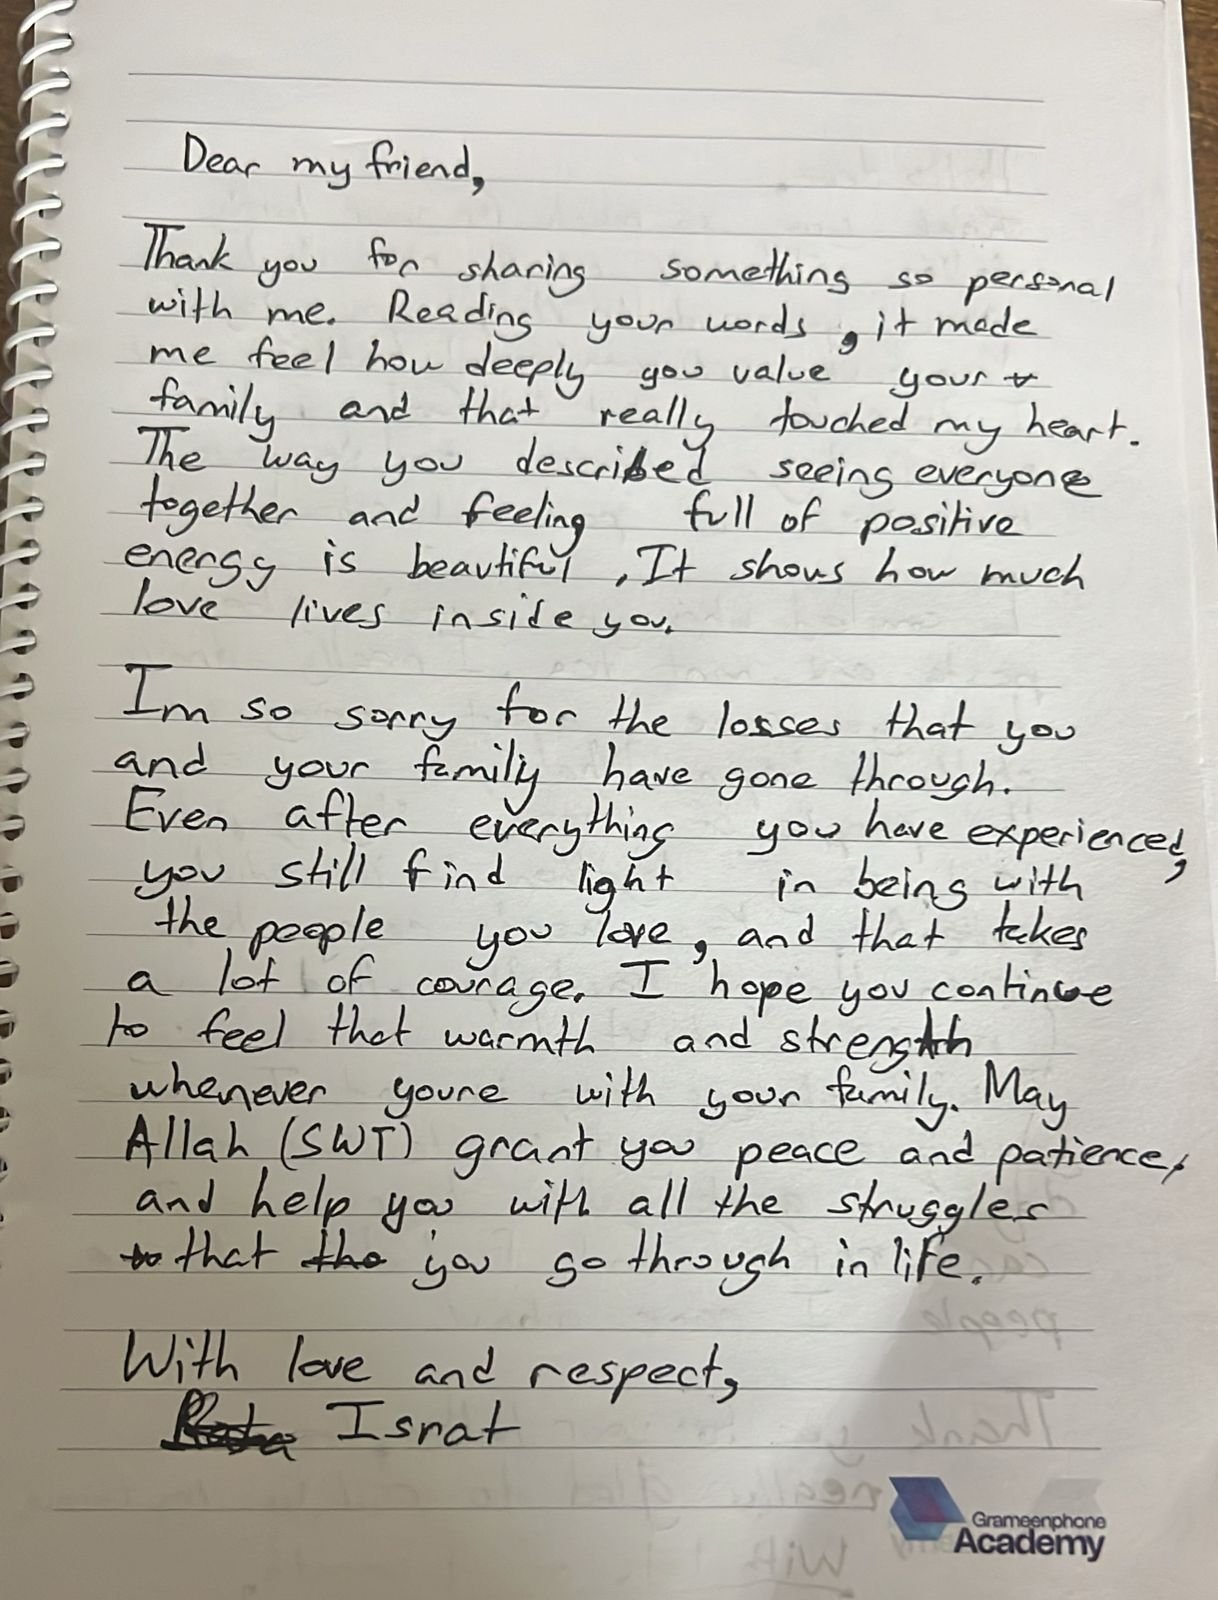 Dear my friend,
Thank you for sharing something so personal
with me. Reading your words, it made
me feel how deeply you value your
family and that really touched my heart.
The way you described seeing everyone
together and feeling full of positive
energy is beautiful, It shows how much
love lives inside you.
Im so sorry for the losses that you
and your family have gone through.
Even after everything you have experienced,
you still find light in being with
the people you love, and that takes
a lot of courage. I hope you continue
to feel that warmth and strength
whenever youre with your family. May
Allah (SWT) grant you peace and patience,
and help you with all the struggles
that you go through in life.
With love and respect,
Israt
Grameenphone
Academy